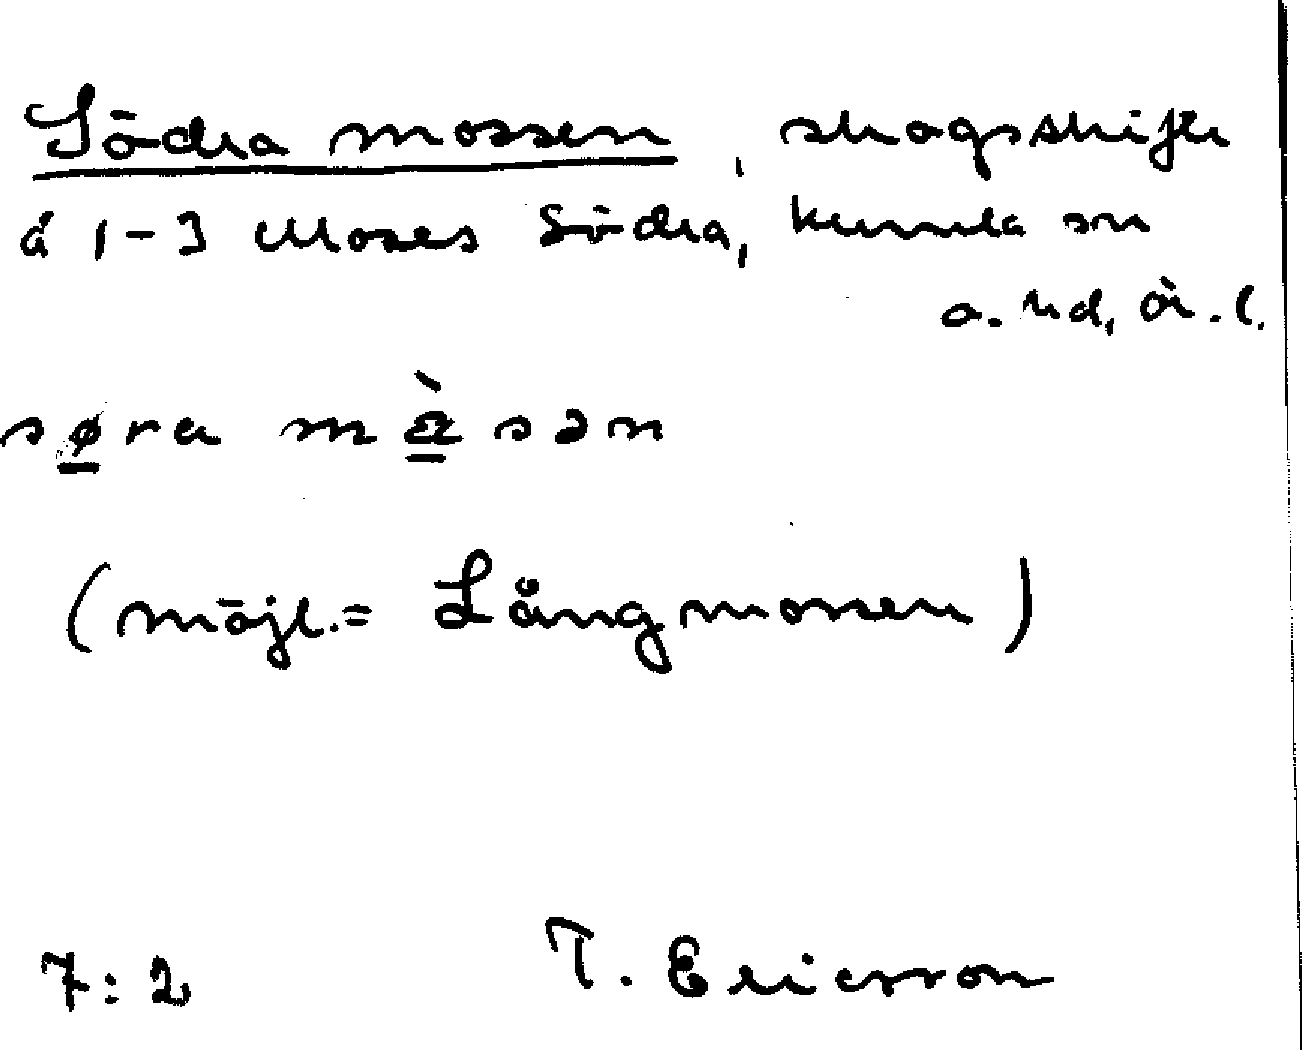 Södra mossen, skogsskifte
å 1-3 Moses Södra, Kumla sn
a. hd, ör. l.
søra mòsən
(möjl.= Långmossen)
7:2 T. Ericsson